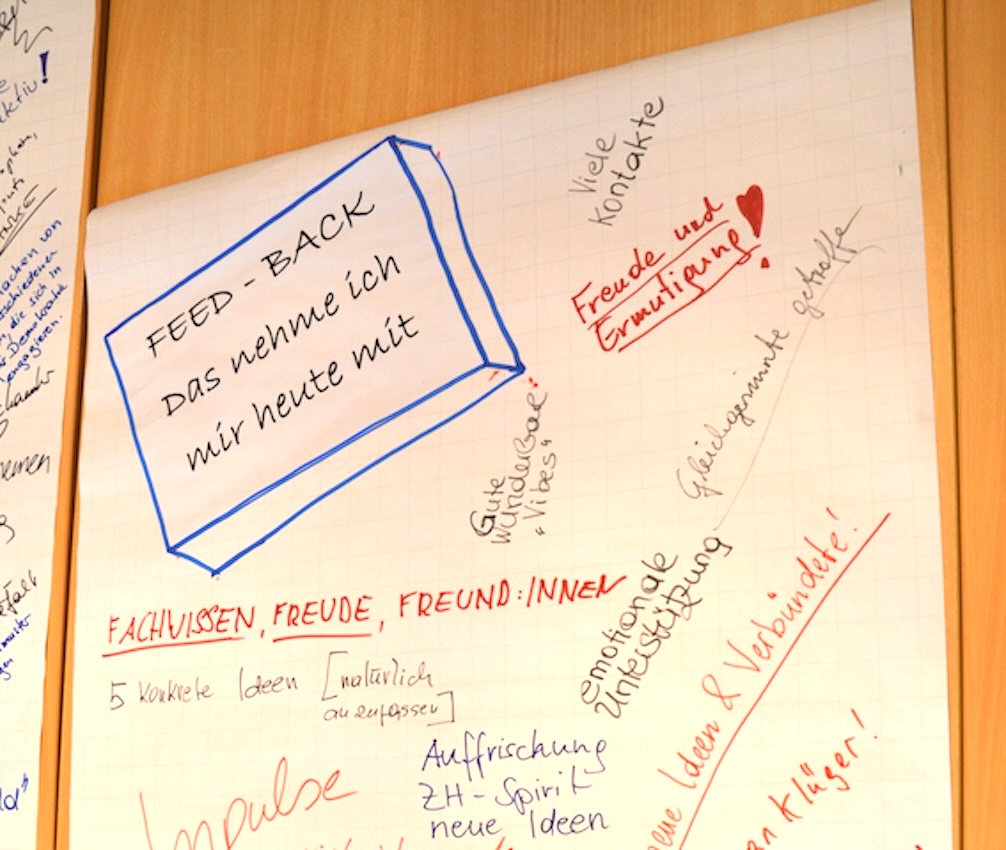 FEED - BACK
Das nehme ich
mir heute mit
Viele
Kontakte
Freude und
Ermutigung!
Gleichgesinnte getroffe
Gute
wunderbare
"Vibes"
Emotionale
Unterstützung
FACHWISSEN, FREUDE, FREUND:INNEN
5 konkrete Ideen [natürlich
anzupassen]
Auffrischung
ZH-Spirit
neue Ideen
Impulse
neue Ideen & Verbündete!
klüger!
machen von
die sich in
Demokratie
engagieren.